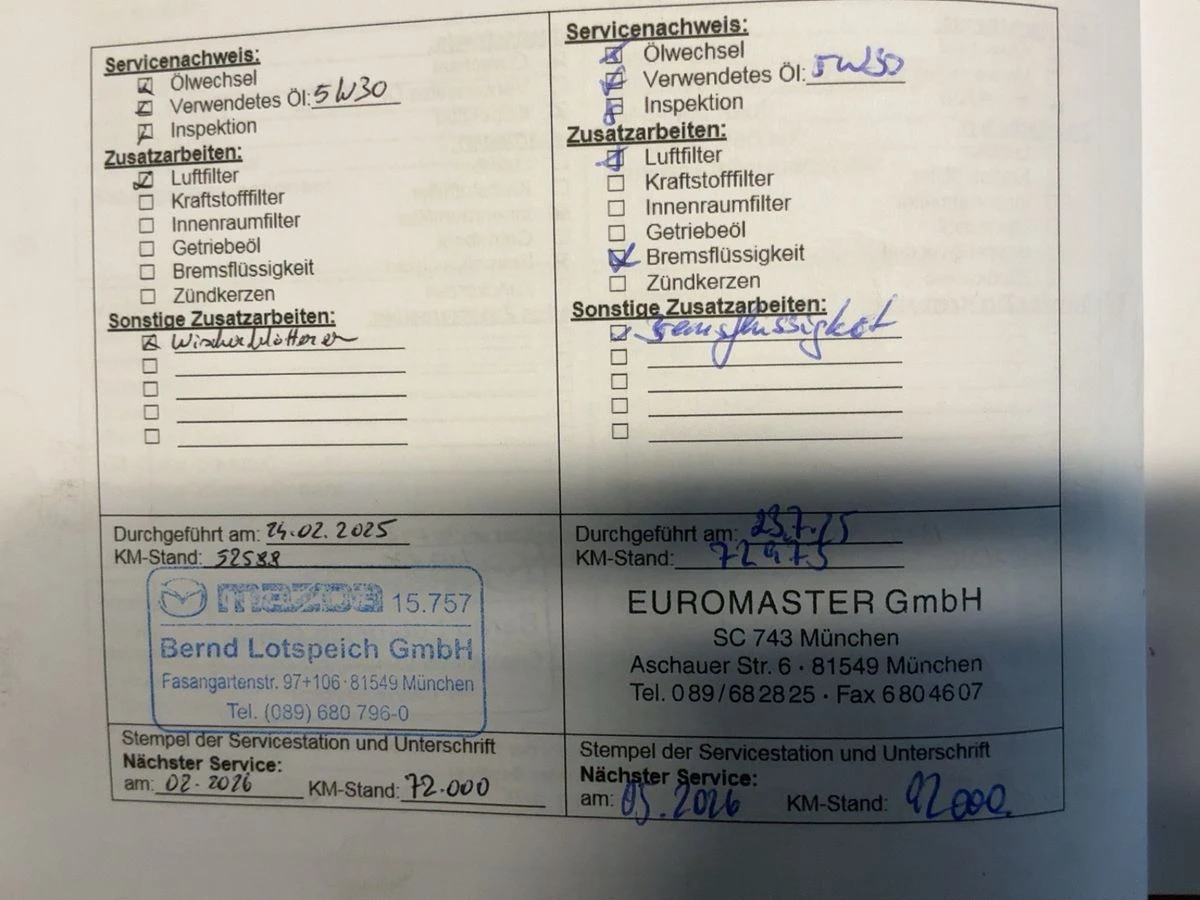 Servicenachweis:
Ölwechsel
Verwendetes Öl: 5W30
Inspektion
Zusatzarbeiten:
Luftfilter
Kraftstofffilter
Innenraumfilter
Getriebeöl
Bremsflüssigkeit
Zündkerzen
Sonstige Zusatzarbeiten:
Wischerblätter
Durchgeführt am: 24.02.2025
KM-Stand: 52588
mazda 15.757
Bernd Lotspeich GmbH
Fasangartenstr. 97+106 · 81549 München
Tel. (089) 680 796-0
Stempel der Servicestation und Unterschrift
Nächster Service:
am: 02.2026 KM-Stand: 72.000
Servicenachweis:
Ölwechsel
Verwendetes Öl: 5W30
Inspektion
Zusatzarbeiten:
Luftfilter
Kraftstofffilter
Innenraumfilter
Getriebeöl
Bremsflüssigkeit
Zündkerzen
Sonstige Zusatzarbeiten:
Bremsflüssigkeit
Durchgeführt am: 23.7.25
KM-Stand: 72975
EUROMASTER GmbH
SC 743 München
Aschauer Str. 6 · 81549 München
Tel. 0 89/68 28 25 · Fax 6 80 46 07
Stempel der Servicestation und Unterschrift
Nächster Service:
am: 05.2026 KM-Stand: 92000